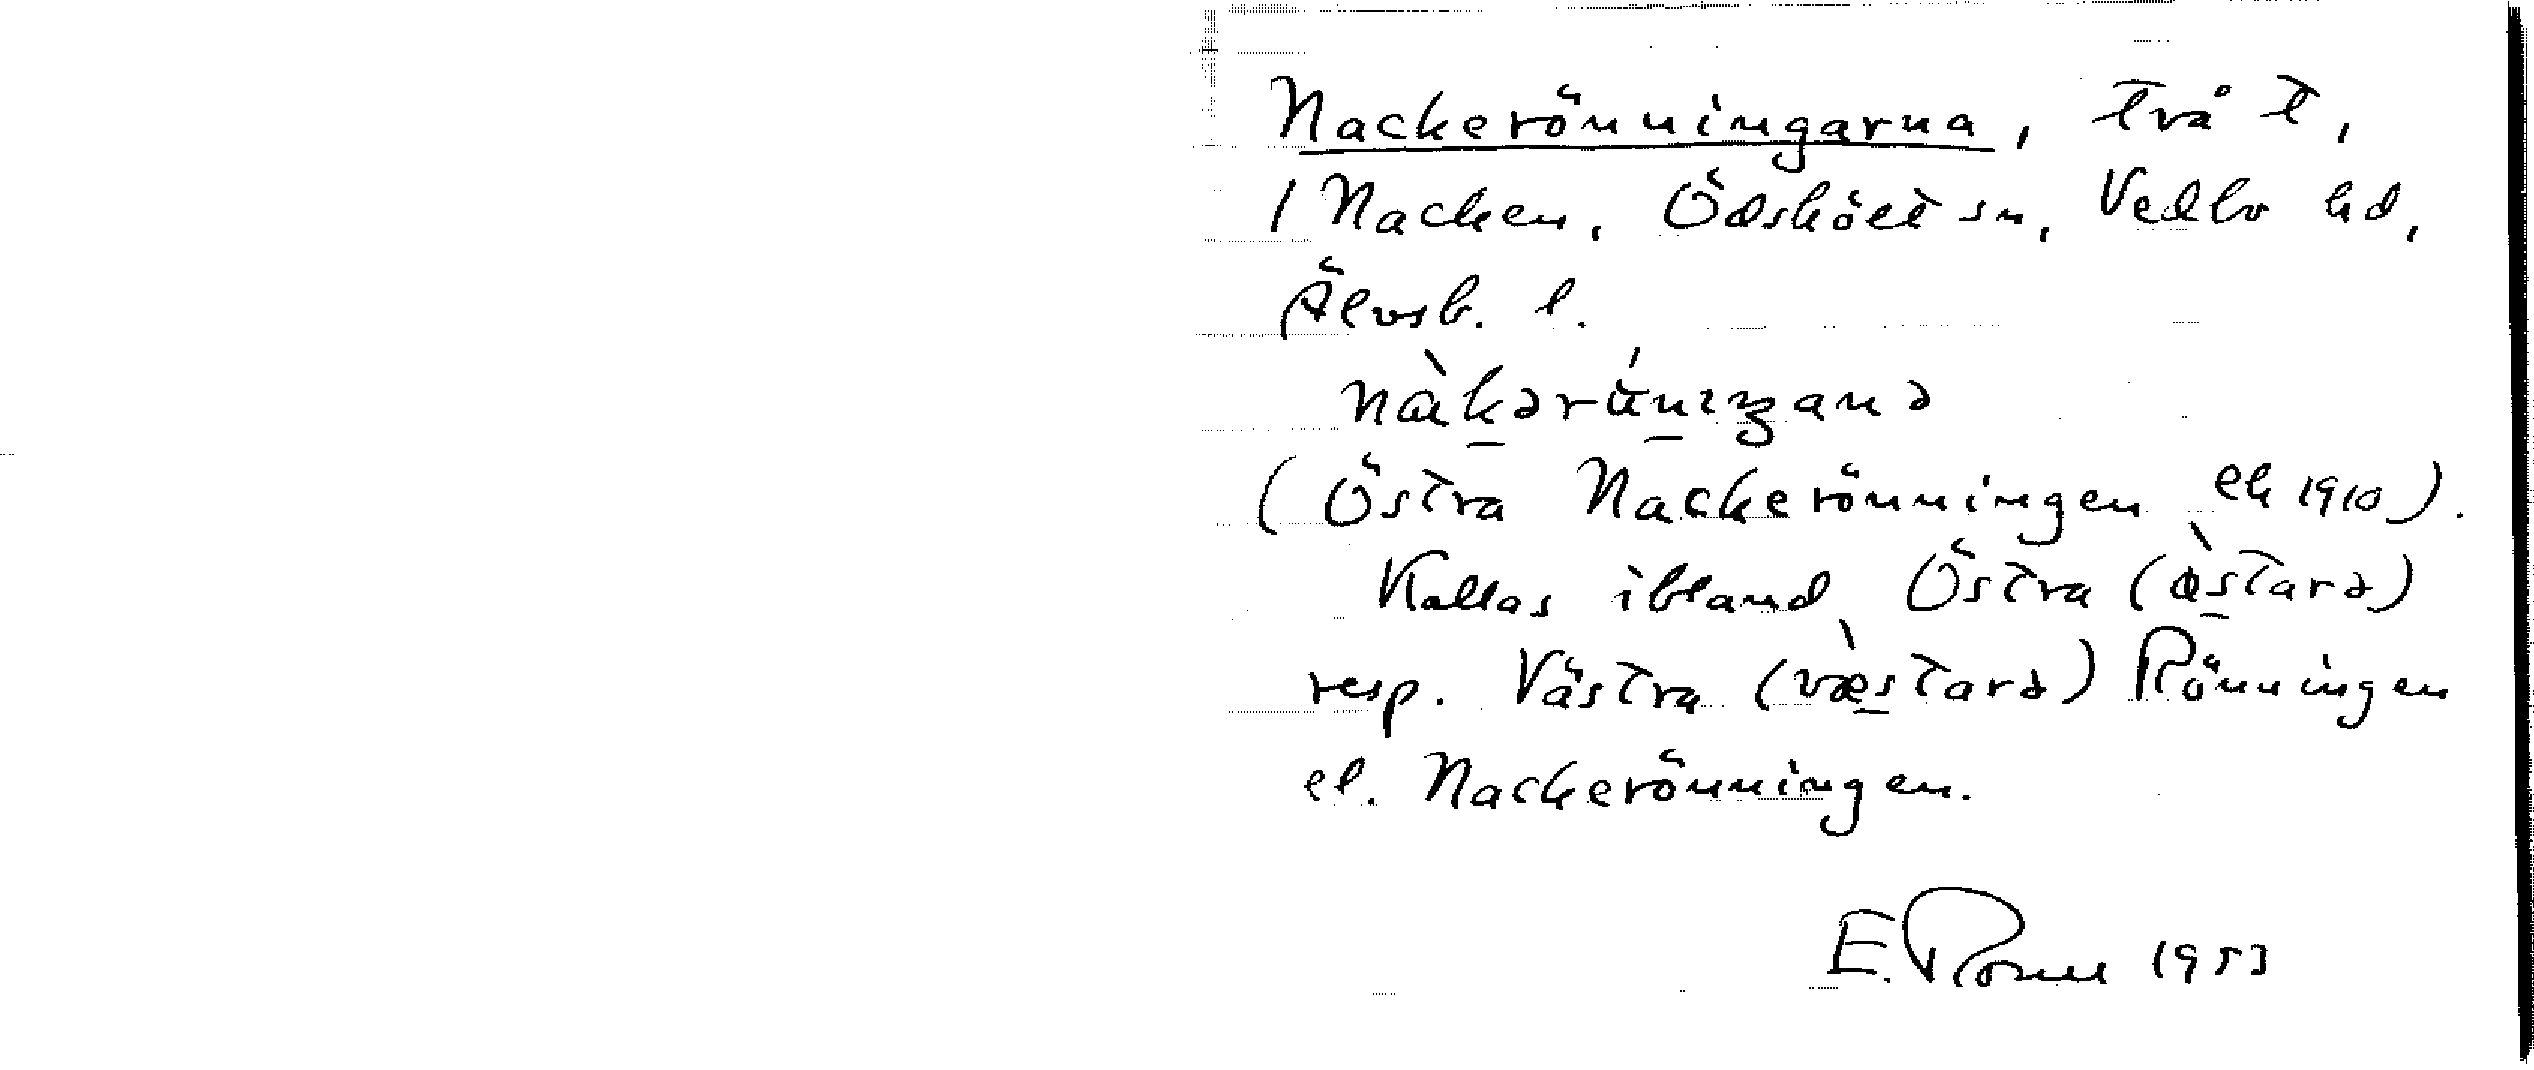 Nackerönningarna, två t,
/ Nacken, Ödskölt sn, Vedbo hd,
Älvsb. l.
nàk̠ərún̠ıŋanə
(Östra Nackerönningen ek 1910).
Kallas ibland Östra (ø̀s̠tarə)
resp. Västra (væ̀s̠tarə) Rönningen
el. Nackerönningen.
E. Rosell 1953